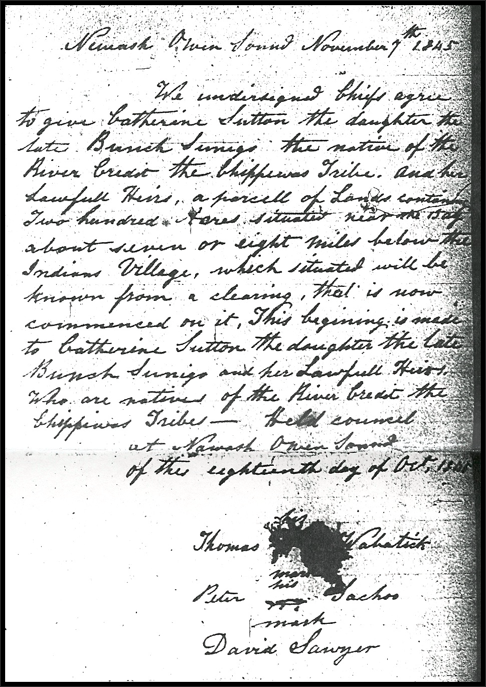 Newash Owen Sound November 7th 1845
We undersigned Chiefs agree
to give Catherine Sutton the daughter the
late Bunch Sunigo the native of the
River Credst the Chippewas Tribe. and her
Lawfull Heirs, a parcell of Lands
Two hundred Acres situated near the Bay
about seven or eight miles below the
Indians Village, which situated will be
known from a clearing, that is now
commenced on it, This begining is made
to Catherine Sutton the daughter the late
Bunch Sunigo and her Lawfull Heirs.
Who are natives of the River Credst the
Chippiwas Tribes — Held counsel
at Nawash Owen Sound
of this eighteenth day of Oct,
his
Thomas Wabatick
mark
his
Peter Sachoo
mark
David Sawyer